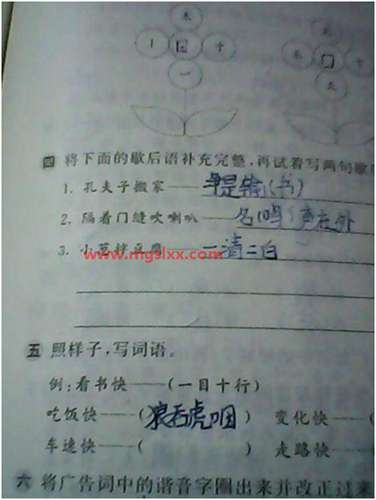 木
亻 子
一
四 将下面的歇后语补充完整,再试着写两句歇
1. 孔夫子搬家——净是输(书)
2. 隔着门缝吹喇叭——名(鸣)声在外
3. 小葱拌豆腐 一清二白
www.mgslxx.com
五 照样子,写词语。
例:看书快——(一目十行)
吃饭快——(狼吞虎咽) 变化快——(
车速快——( ) 走路快——(
六 将广告词中的谐音字圈出来并改正过来